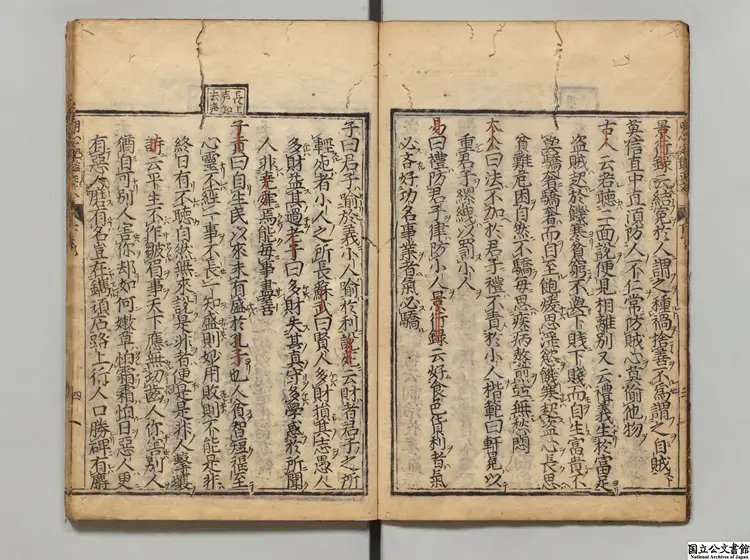 景行録云結寃於人謂之種禍捨善不為謂之自賊
莫信直中直須防人不仁常防賊心莫偷他物
古人云若聽一面說便見相離別又云禮義生於富足
盗賊契於饑寒貧窮不與下賤下賤而自生富貴不
與驕奢驕奢而自至飽煖思淫慾饑寒契盗心長思
貧難危困自然不驕毎思疾病熬煎並無愁悶
太公曰法不加於君子禮不責於小人楷範曰軒冕以
重君子縲絏以罰小人
易曰禮防君子律防小人景行録云好食色貨利者氣
必吝好功名事業者氣必驕
長上
声知
去声
子曰君子喻於義小人喻於利說苑云財者君子之所
輕死者小人之所長蘇武曰賢人多財損其志愚人
多財益其過老子曰多財失其真守多學惑於所聞
人非堯舜焉能毎事盡善
子貢曰自生民以來未有盛於孔子也人貧智短福至
心靈不經一事不長一知盛則妙用敗則不能是非
終日有不聽自然無來說是非者便是是非人擊壤
詩云平生不作皺眉事天下應無切齒人你害別人
猶自可別人害你却如何嫩草怕霜霜怕日惡人更
有惡人磨有名豈在鐫頑石路上行人口勝碑有麝
四
国立公文書館
National Archives of Japan